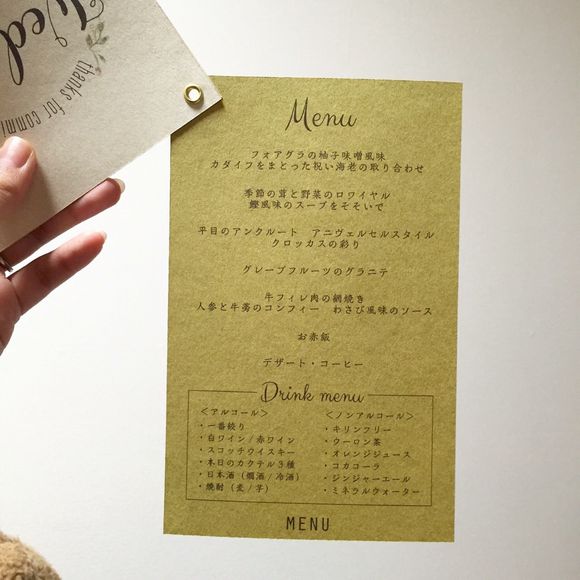 Wed
thanks for commi
Menu
フォアグラの柚子味噌風味
カダイフをまとった祝い海老の取り合わせ
季節の茸と野菜のロワイヤル
鰹風味のスープをそそいで
平目のアンクルート アニヴェルセルスタイル
クロッカスの彩り
グレープフルーツのグラニテ
牛フィレ肉の網焼き
人参と牛蒡のコンフィー わさび風味のソース
お赤飯
デザート・コーヒー
Drink menu
＜アルコール＞
・一番搾り
・白ワイン / 赤ワイン
・スコッチウイスキー
・本日のカクテル３種
・日本酒（燗酒 / 冷酒）
・焼酎（麦 / 芋）
＜ノンアルコール＞
・キリンフリー
・ウーロン茶
・オレンジジュース
・コカコーラ
・ジンジャーエール
・ミネラルウォーター
MENU